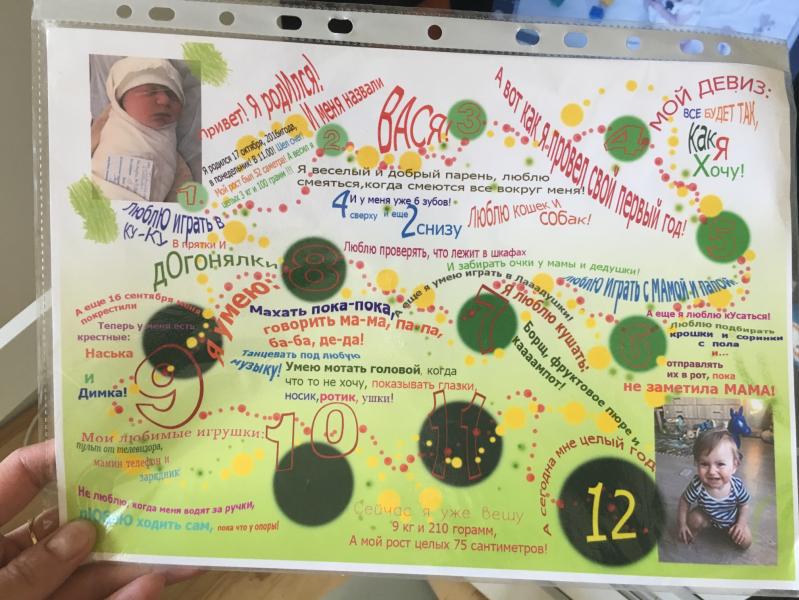 Привет! Я родИлся!
И меня назвали
ВАСЯ!
Я родился 17 октября, 2016года,
в понедельник! В 11.00! Шел снег!
Мой рост был 52 саметра! А весил я
целых 3 кг и 100 грамм !!!
1
2
3
А вот как я провел свой первый год!
4
МОЙ ДЕВИЗ:
ВСЕ БУДЕТ ТАК,
как Я
Хочу!
Я веселый и добрый парень, люблю
смеяться,когда смеются все вокруг меня!
И у меня уже 6 зубов!
4 сверху и еще 2 снизу
Люблю кошек и
собак!
5
люблЮ играть в
ку -КУ
В прятки и
дОгонялки
Люблю проверять, что лежит в шкафах
И забирать очки у мамы и дедушки!
люблю ИГРАТЬ С МАМОЙ И ПАПОЙ
А еще я умею играть в Лаладушки!
8
7
5
А еще 16 сентября меня
покрестили
Теперь у меня есть
крестные:
Наська
И
Димка!
9
я умею:
Махать пока-пока,
говорить ма-ма, па-па,
ба-ба, де-да!
Танцевать под любую
музыку!
Умею мотать головой, когда
что то не хочу, показывать глазки,
носик,ротик, ушки!
Я люблю кушать!
Борщ, фруктовое пюре и
каааампот!
А еще я люблю кУсаться!
Люблю подбирать
крошки и соринки
с пола
и...
отправлять
их в рот, пока
не заметила МАМА!
Мои любимые игрушки:
пульт от телевизора,
мамин телефон и
зарядник
10
11
Не люблю, когда меня водят за ручки,
лЮблЮ ходить сам, пока что у опоры!
Сейчас я уже вешу
9 кг и 210 горамм,
А мой рост целых 75 сантиметров!
А сегодна мне целый год
12